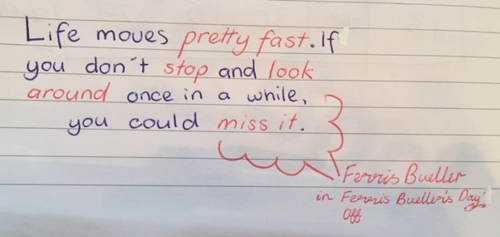 Life moves pretty fast. If
you don't stop and look
around once in a while,
you could miss it.
Ferris Bueller
in Ferris Bueller's Day
Off